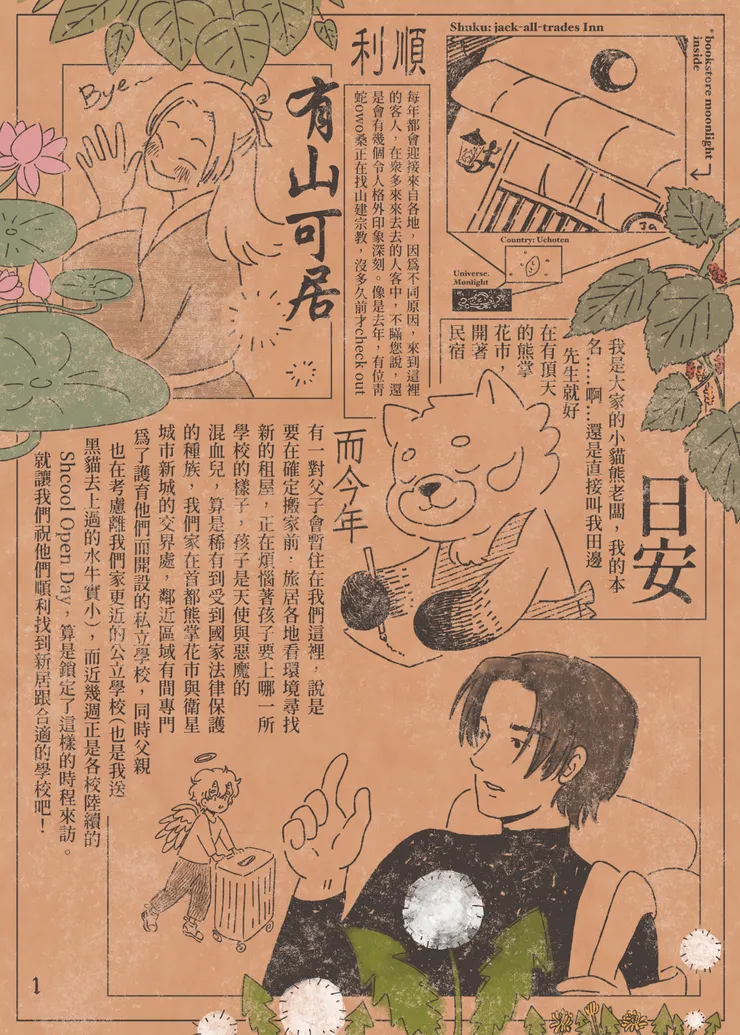 Shuku: jack-all-trades Inn
*bookstore moonlight
inside
Country: Uchoten
Universe.
Monlight
日安
我是大家的小貓熊老闆，我的本
名……啊……還是直接叫我田邊
先生就好
在有頂天
的熊掌
花市，
開著
民宿
順利
每年都會迎接來自各地，因爲不同原因，來到這裡
的客人，在衆多來來去去的人客中，不瞞您說，還
是會有幾個令人格外印象深刻。像是去年，有位靑
蛇owo桑正在找山建宗教，沒多久前才check out
有山可居
Bye~
而今年
有一對父子會暫住在我們這裡，說是
要在確定搬家前，旅居各地看環境尋找
新的租屋，正在煩惱著孩子要上哪一所
學校的樣子，孩子是天使與惡魔的
混血兒，算是稀有到受到國家法律保護
的種族，我們家在首都熊掌花市與衛星
城市新城的交界處，鄰近區域有間專門
爲了護育他們而開設的私立學校，同時父親
也在考慮離我們家更近的公立學校(也是我送
黑貓去上過的水牛實小)，而近幾週正是各校陸續的
Shcool Open Day，算是鎖定了這樣的時程來訪。
就讓我們祝他們順利找到新居跟合適的學校吧！
1